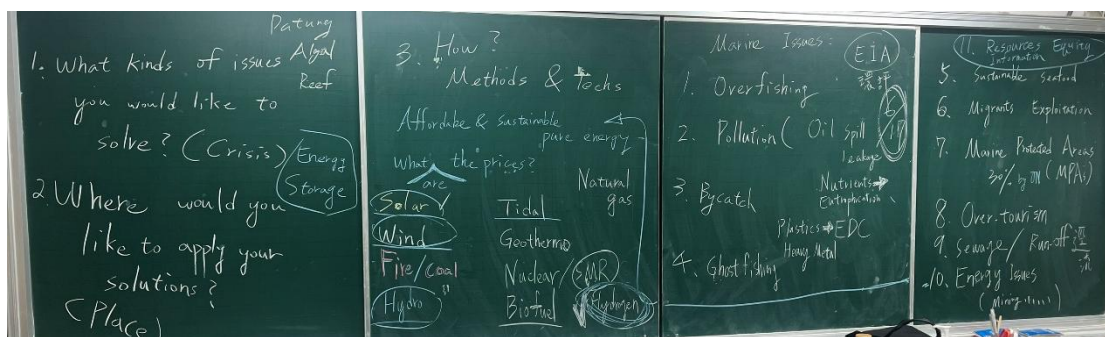 Datung
Algal
Reef
1. What kinds of issues
you would like to
solve? (Crisis)
Energy
Storage
2. Where would you
like to apply your
solutions?
(Place)
3. How?
Methods & Techs
Affordable & sustainable
pure energy
What are the prices?
Solar ✓
Wind
Fire/coal
Hydro
Tidal
Nuclear/SMR
Biofuel
Hydrogen
Natural
gas
Marine Issues:
EIA
環評
1. Overfishing
2. Pollution (Oil spill
Leakage
Nutrients →
Eutrophication
Plastics → EDC
Heavy Metal
3. Bycatch
4. Ghost fishing
11. Resources Equity
Information
5. Sustainable seafood
6. Migrants Exploitation
7. Marine Protected Areas
30% by (MPAs)
8. Over-tourism
9. Sewage/Run-off
10. Energy Issues